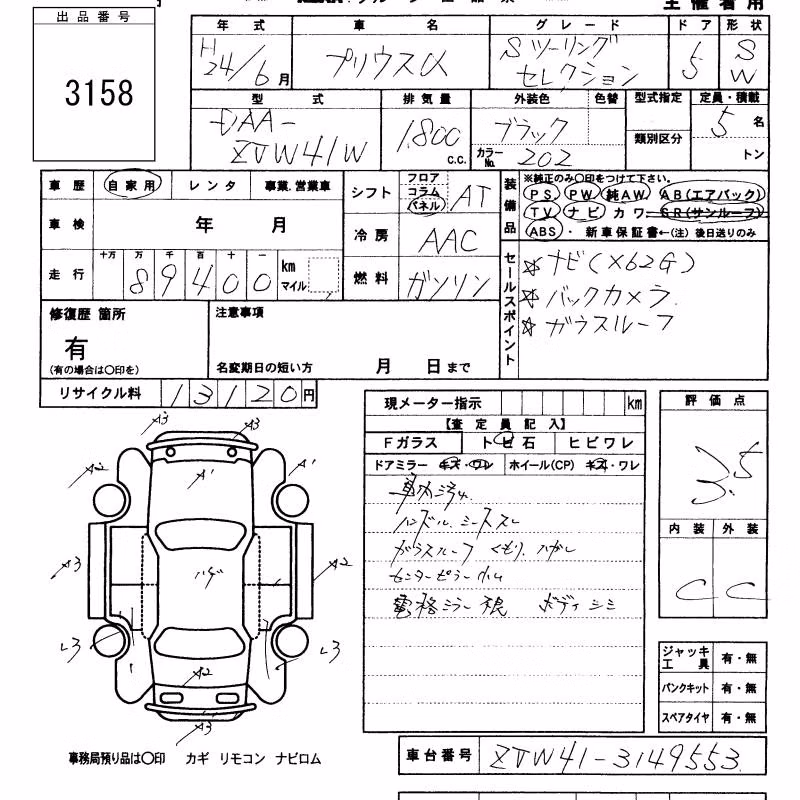 主催者用
出品番号
3158
年式 車名 グレード ドア 形状
H24/6月 プリウスα Sツーリング セレクション 5 SW
型式 排気量 外装色 色替 型式指定 定員・積載
DAA-ZVW41W 1,800 c.c. ブラック 類別区分 5名
カラーNo. 202 トン
車歴 自家用 レンタ 事業.営業車
シフト フロア コラム パネル AT
装備品 ※純正のみ〇印をつけて下さい。
PS PW 純AW AB(エアバック)
TV ナビ カワ SR(サンルーフ)
ABS・新車保証書←(注)後日送りのみ
車検 年 月
冷房 AAC
走行 十万 万 千 百 十 一
89400 km マイル
燃料 ガソリン
セールスポイント
☆ナビ(X62G)
☆バックカメラ
☆ガラスルーフ
修復歴 箇所
有
(有の場合は〇印を)
注意事項
名変期日の短い方 月 日まで
リサイクル料 13120円
現メーター指示 km
【査定員記入】
Fガラス トビ石 ヒビワレ
ドアミラー キズ・ワレ ホイール(CP) キズ・ワレ
車内汚れ
ハンドル、シートスレ
ガラスルーフ くもり、ハガレ
センターピラー
電格ミラー ボディシミ
評価点
3.5
内装 外装
C C
A3 A3
A2 A1 A1
A3 ハゲ A2
L3 L3
A2
A3
ジャッキ工具 有・無
パンクキット 有・無
スペアタイヤ 有・無
事務局預り品は〇印 カギ リモコン ナビロム
車台番号 ZVW41-3149553